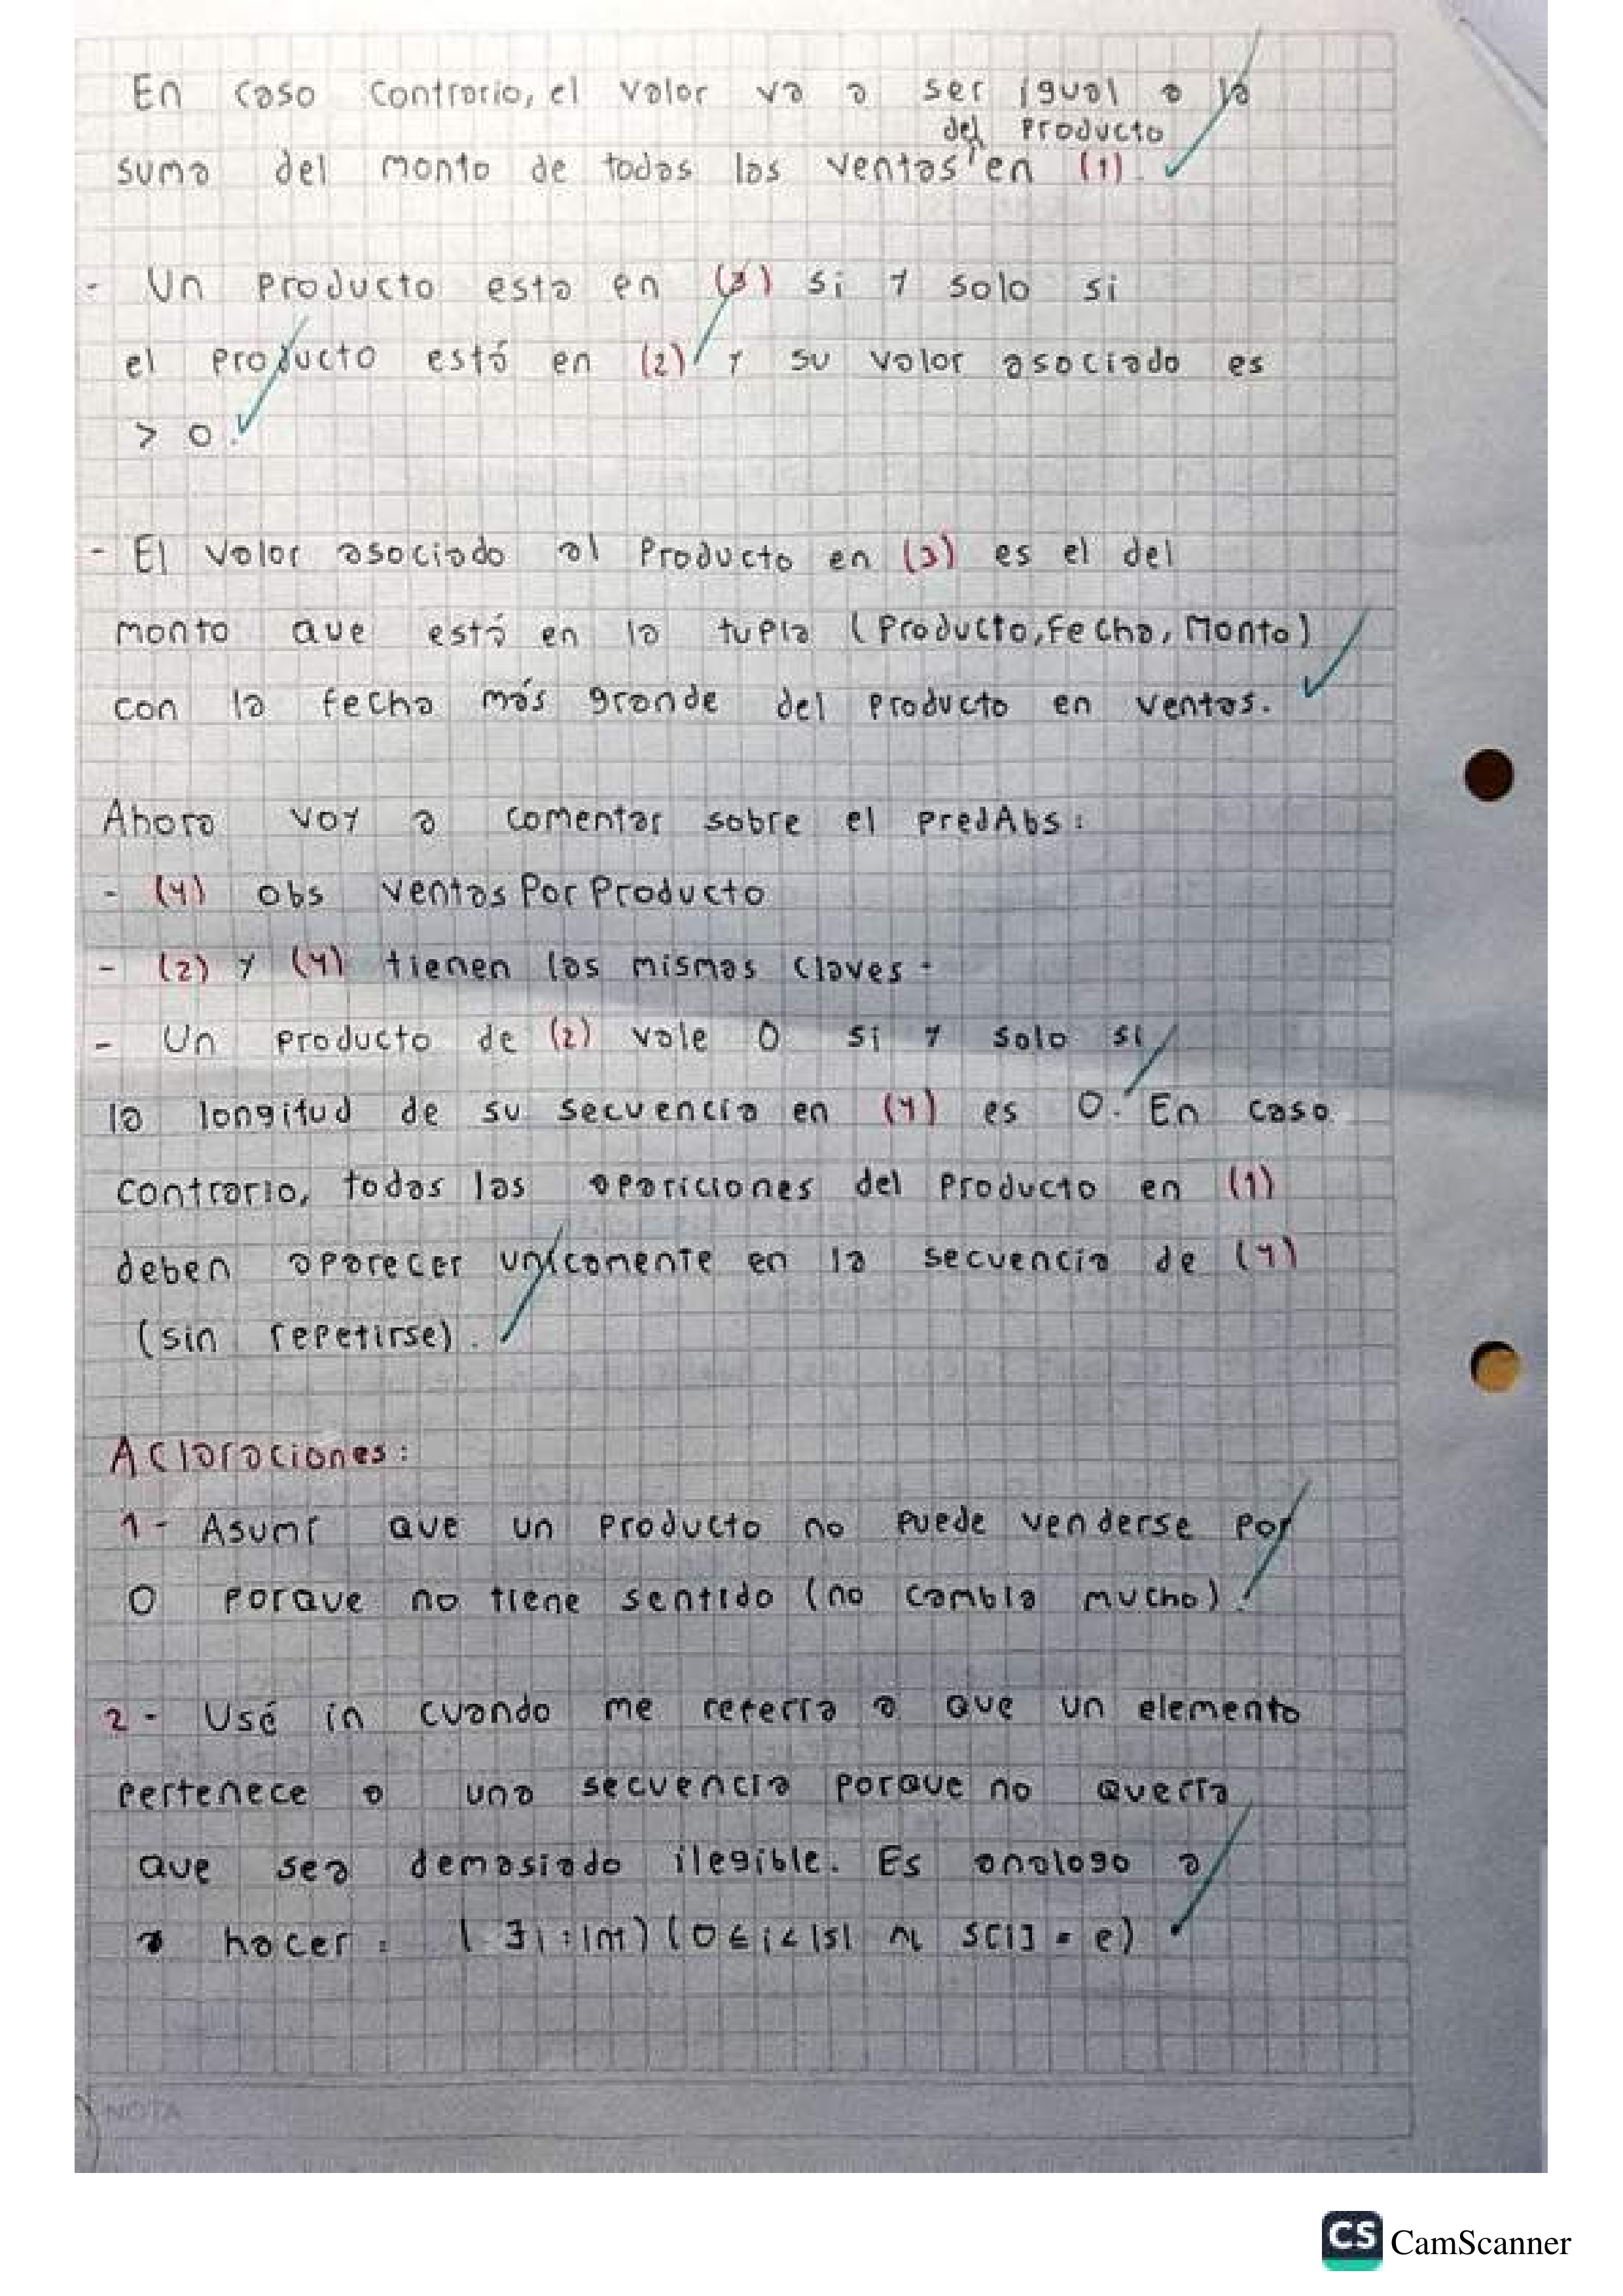 En caso contrario, el valor va a ser igual a la
del producto
suma del monto de todas las ventas en (1).
- Un producto esta en (3) si y solo si
el producto está en (2) y su valor asociado es
> 0.
- El valor asociado al producto en (3) es el del
monto que está en la tupla (producto, fecha, monto)
con la fecha más grande del producto en ventas.
Ahora voy a comentar sobre el predAbs:
- (4) obs ventasPorProducto
- (2) y (4) tienen las mismas claves.
- Un producto de (2) vale 0 si y solo si
la longitud de su secuencia en (4) es 0. En caso
contrario, todas las apariciones del producto en (1)
deben aparecer unicamente en la secuencia de (4)
(sin repetirse).
Aclaraciones:
1- Asumí que un producto no puede venderse por
0 porque no tiene sentido (no cambia mucho).
2- Usé in cuando me refería a que un elemento
pertenece a una secuencia porque no quería
que sea demasiado ilegible. Es analogo a
a hacer: (∃i:int)(0≤i<|s| ∧L s[i] = e)
NOTA
CS CamScanner